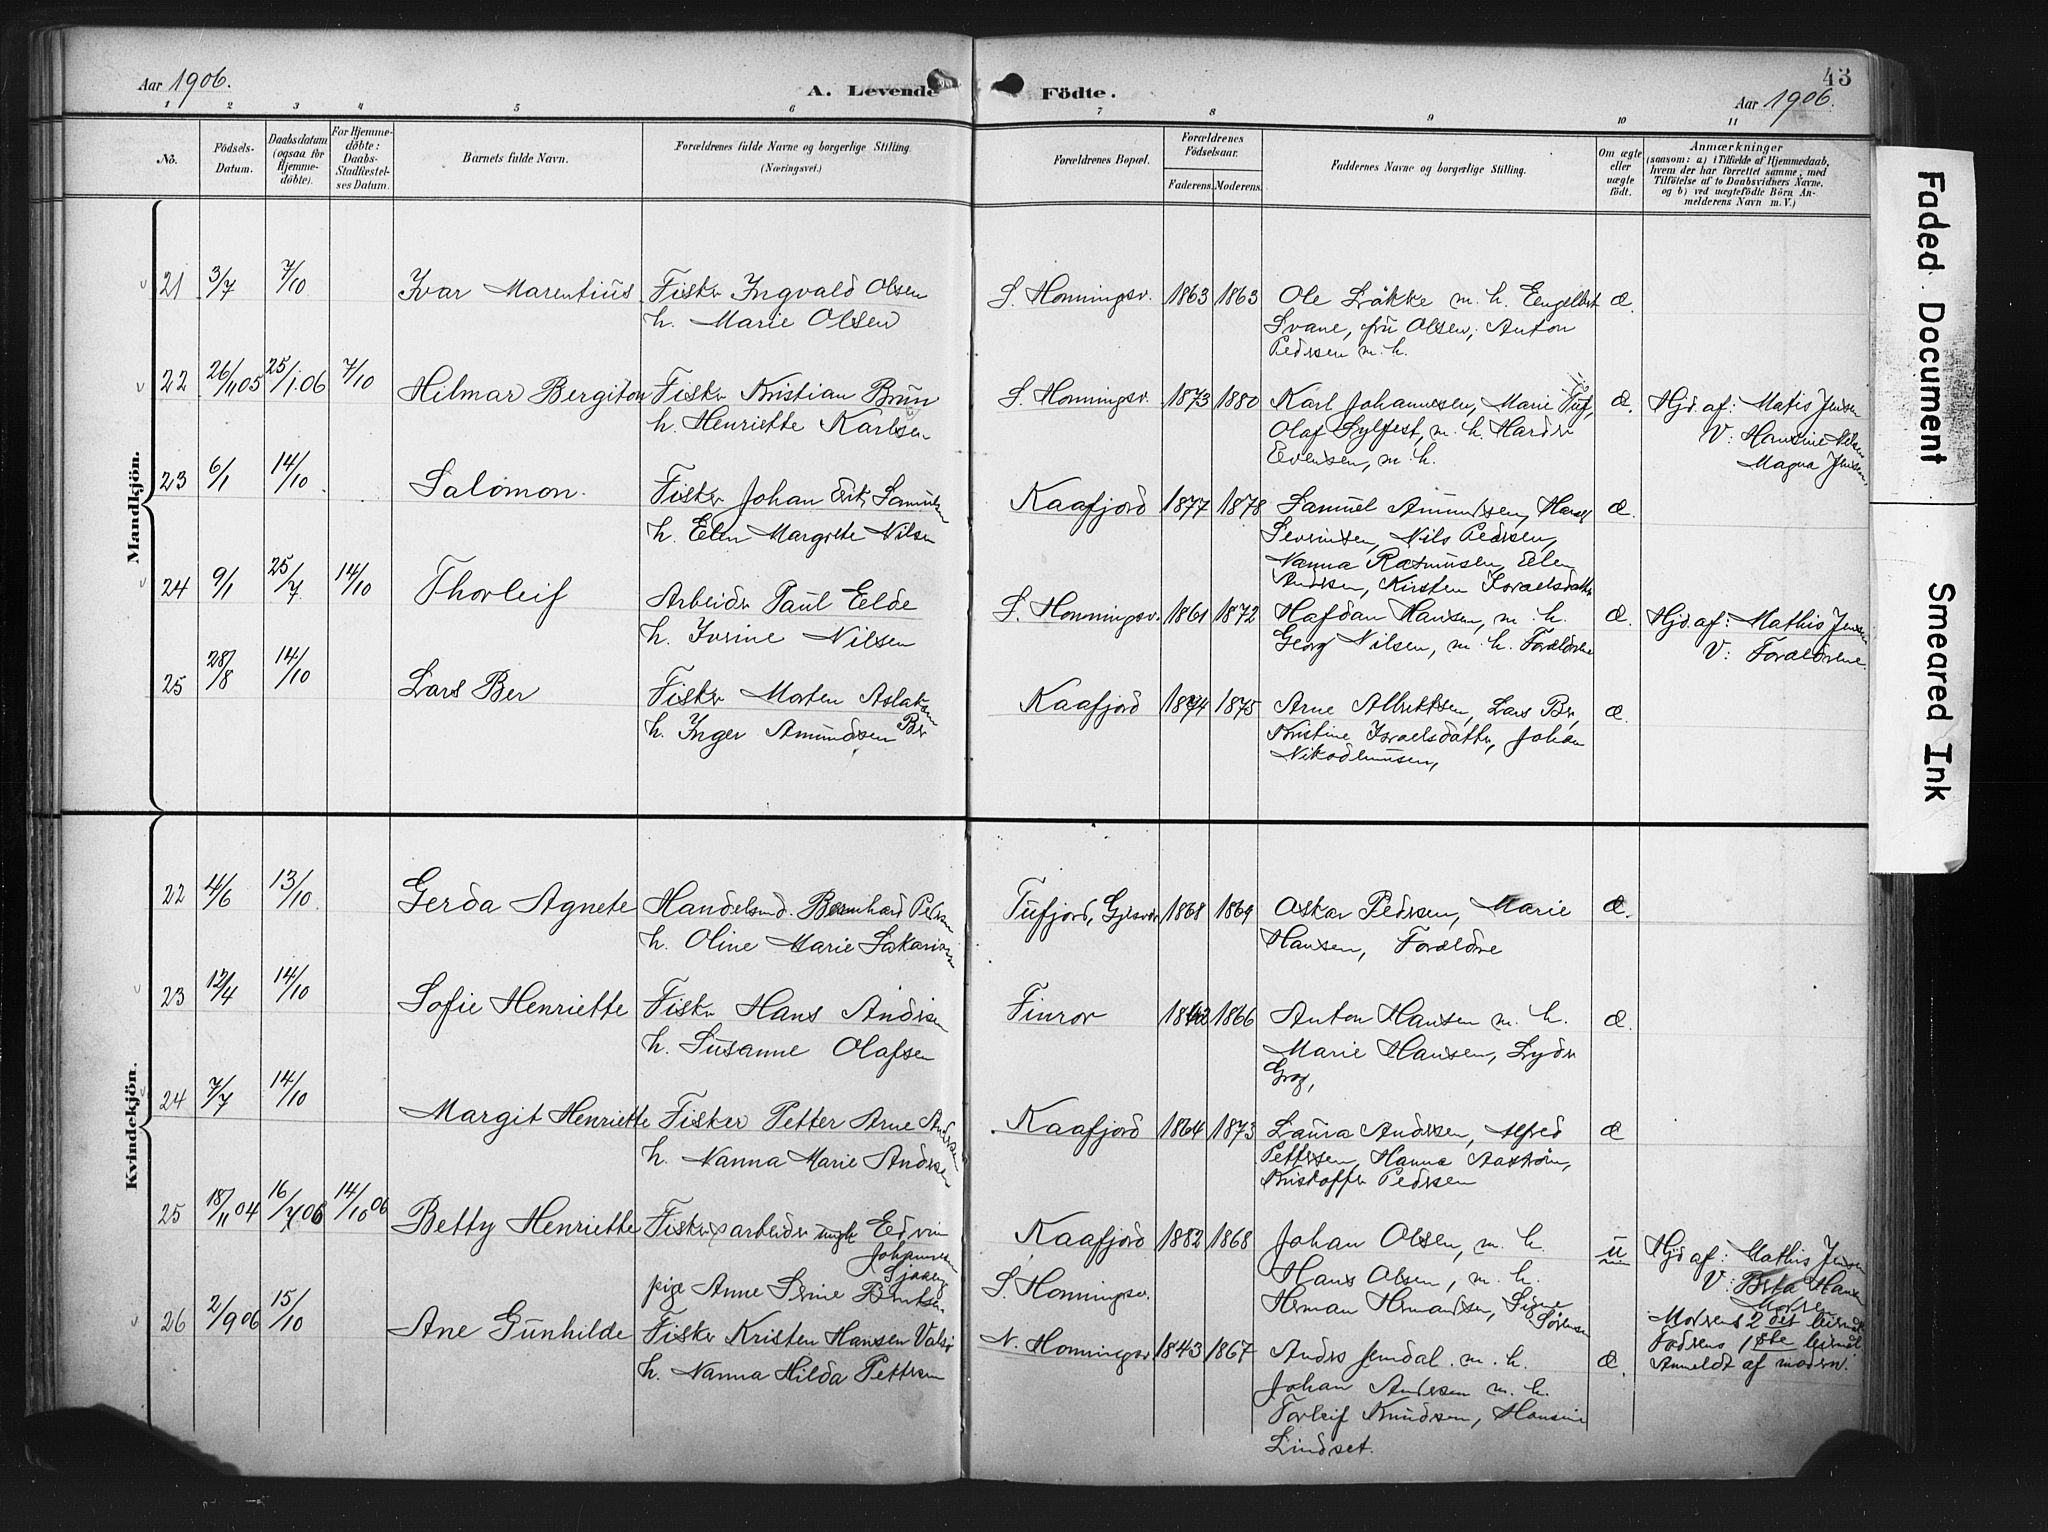 Aar 1906.
A. Levende Födte.
43
Aar 1906.
1 2 3 4 5 6 7 8 9 10 11
No.
Födsels-
Datum.
Daabsdatum
(ogsaa for
Hjemme-
döbte).
For Hjemme-
döbte:
Daabs-
Stadfæstel-
ses Datum.
Barnets fulde Navn.
Forældrenes fulde Navne og borgerlige Stilling
(Næringsvei.)
Forældrenes Bopæl.
Forældrenes
Födselsaar.
Faderens. Moderens.
Faddernes Navne og borgerlige Stilling.
Om ægte
eller
uægte
födt.
Anmærkninger
(saasom: a) i Tilfælde af Hjemmedaab,
hvem der har forrettet samme, med
Tilföielse af to Daabsvidners Navne,
og b) ved uægtefödte Börn An-
melderens Navn m. V.)
Mandkjön.
21 3/7 7/10 Ivar Marentius Fisker Ingvald Olsen
h. Marie Olsen
S. Honningsv. 1863 1863 Ole Løkke m. h. Engelbret
Svane, fru Olsen, Anton
Pedersen m. h.
æ.
22 26/11 05 25/1.06 7/10 Hilmar Bergiton Fisker Kristian Brun
h. Henriette Karlsen
S. Honningsv. 1873 1880 Karl Johannesen, Marie
Olaf Sylfest, m. h. Harder
Evensen, m. h.
æ. Hjd. af: Matis Jensen
V: Hansine
Magna Jensen.
23 6/1 14/10 Salomon. Fisker Johan Erik Samuelsen
h. Elen Margrete Nilsen
Kaafjord 1877 1878 Samuel Amundsen,
Severinsen, Nils Pedersen,
Nanna Rasmusen, Elen
Andersen, Kirsten Israelsdatter
æ.
24 9/1 25/7 14/10 Thorleif Arbeider Paul Elde
h. Ivrine Nilsen
S. Honningsv. 1861 1872 Hafdan Hansen, m. h.
Georg Nilsen, m. h. Forældrene
æ. Hjd. af: Mathis Jensen
V: Forældrene.
25 28/8 14/10 Lars Ber Fisker Morten Aslaksen
Ber
h. Inger Amundsen
Kaafjord 1874 1875 Arne Albrektsen, Lars Ber,
Kristine Israelsdatter, Johan
Nikodemusen,
æ.
Kvindekjön.
22 4/6 13/10 Gerda Agnete Handelsmd. Bernhard Pedersen
h. Oline Marie Sakariasen
Tufjord, Gjesvær 1868 1869 Oskar Pedersen, Marie
Hansen, Forældre
æ.
23 12/4 14/10 Sofie Henriette Fisker Hans Andersen
h. Susanne Olafsen
Finvor 1866 Anton Hansen m. h.
Marie Hansen,
æ.
24 7/7 14/10 Margit Henriette Fisker Petter Arne Andersen
h. Nanna Marie Andersen
Kaafjord 1864 1873 Laura Andersen, Alfred
Pettersen, Hanna Aastrøm,
Kristoffer Pedersen
æ
25 18/11 04 16/7 06 14/10 06 Betty Henriette Fiskerarbeider ungk Edvin
Johannesen
pige Anne Serine Bentsen
Kaafjord 1882 1868 Johan Olsen, m. h.
S. Honningsv.
Hans Olsen, m. h.
Herman Hermandsen, Signe
Sørensen
u
Hjd af: Mathis Jensen
V: Berta Hansen
Moren
Morens 2det leiermål
Faderens 1ste leiermål.
Anmeldt af modern.
26 2/9 06 15/10 Ane Gunhilde Fisker Kristen Hansen
h. Nanna Hilda Pettersen
N. Honningsv 1843 1867 Anders Jemdal. m. h.
Johan Andersen m. h.
Torleif Knudsen, Hansine
Lindset.
æ.
Faded Document
Smeared Ink